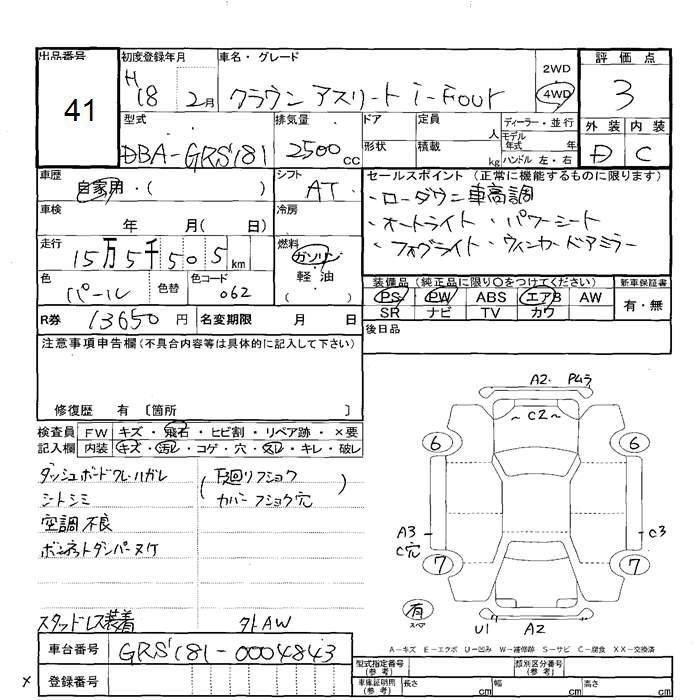 出品番号 41
初度登録年月 H18 2月
車名・グレード クラウン アスリート i-Four
2WD
4WD
評価点 3
型式 DBA-GRS181
排気量 2500 cc
ドア 形状
定員 人
積載 kg
ディーラー・並行
モデル年式 年
ハンドル 左・右
外装 D
内装 C
車歴 自家用・( )
シフト AT
セールスポイント (正常に機能するものに限ります)
・ローダウン車高調
・オートライト ・パワーシート
・フォグライト・ウィンカードアミラー
車検 年 月( 日)
冷房
走行 15万5千505 km
燃料 ガソリン
軽・油
( )
色 パール
色替
色コード 062
装備品 (純正品に限り○をつけてください)
新車保証書
PS PW ABS エアB AW
SR ナビ TV カワ
有・無
R券 13650 円
名変期限 月 日
後日品
注意事項申告欄(不具合内容等は具体的に記入して下さい)
修復歴 有 〔箇所 〕
検査員 FW キズ・飛石・ヒビ割・リペア跡・×要
記入欄 内装 キズ・汚レ・コゲ・穴・スレ・キレ・破レ
ダッシュボードクレ・ハガレ
シートシミ
空調不良
ボンネットダンパーヌケ
(下廻リフショク
カバーフショク穴)
スタッドレス装着 タトAW
A2・ PMラ
~C2~
6 6
A3
C穴
C3
7 7
有
スペア
U1 A2
A-キズ E-エクボ U-凹み W-補修跡 S-サビ C-腐食 XX-交換済
車台番号 GRS181-0004843
× 登録番号
型式指定番号(参考)
類別区分番号(参考)
車庫証明用(参考) 長さ cm 幅 cm 高さ cm